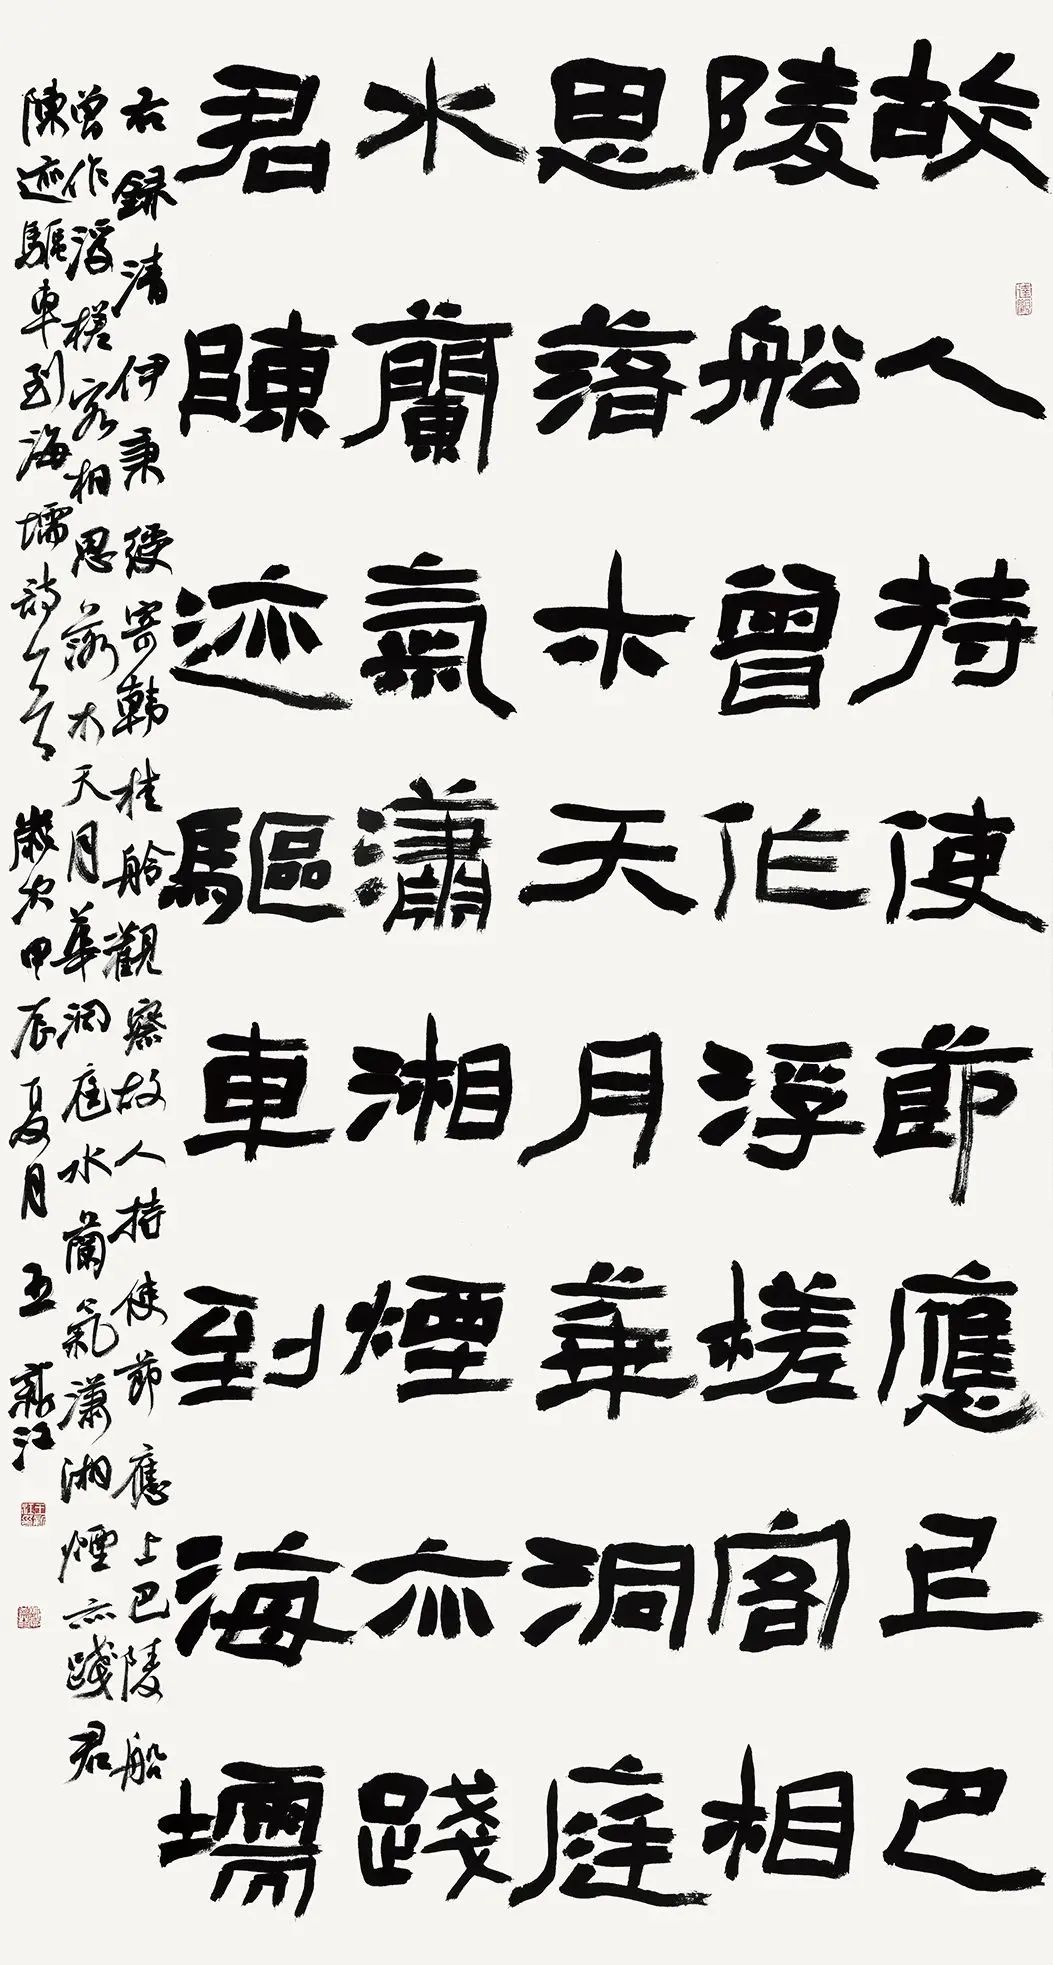 故人持使節應上巴
陵船曾作浮槎客相
思落木天月華洞庭
水蘭氣瀟湘煙亦踐
君陳迹驅車到海壖
右録清伊秉綬寄韓桂舲觀察故人持使節應上巴陵船
曾作浮槎客相思落木天月華洞庭水蘭氣瀟湘煙亦踐君
陳迹驅車到海壖詩一首 歲次甲辰夏月 王新江